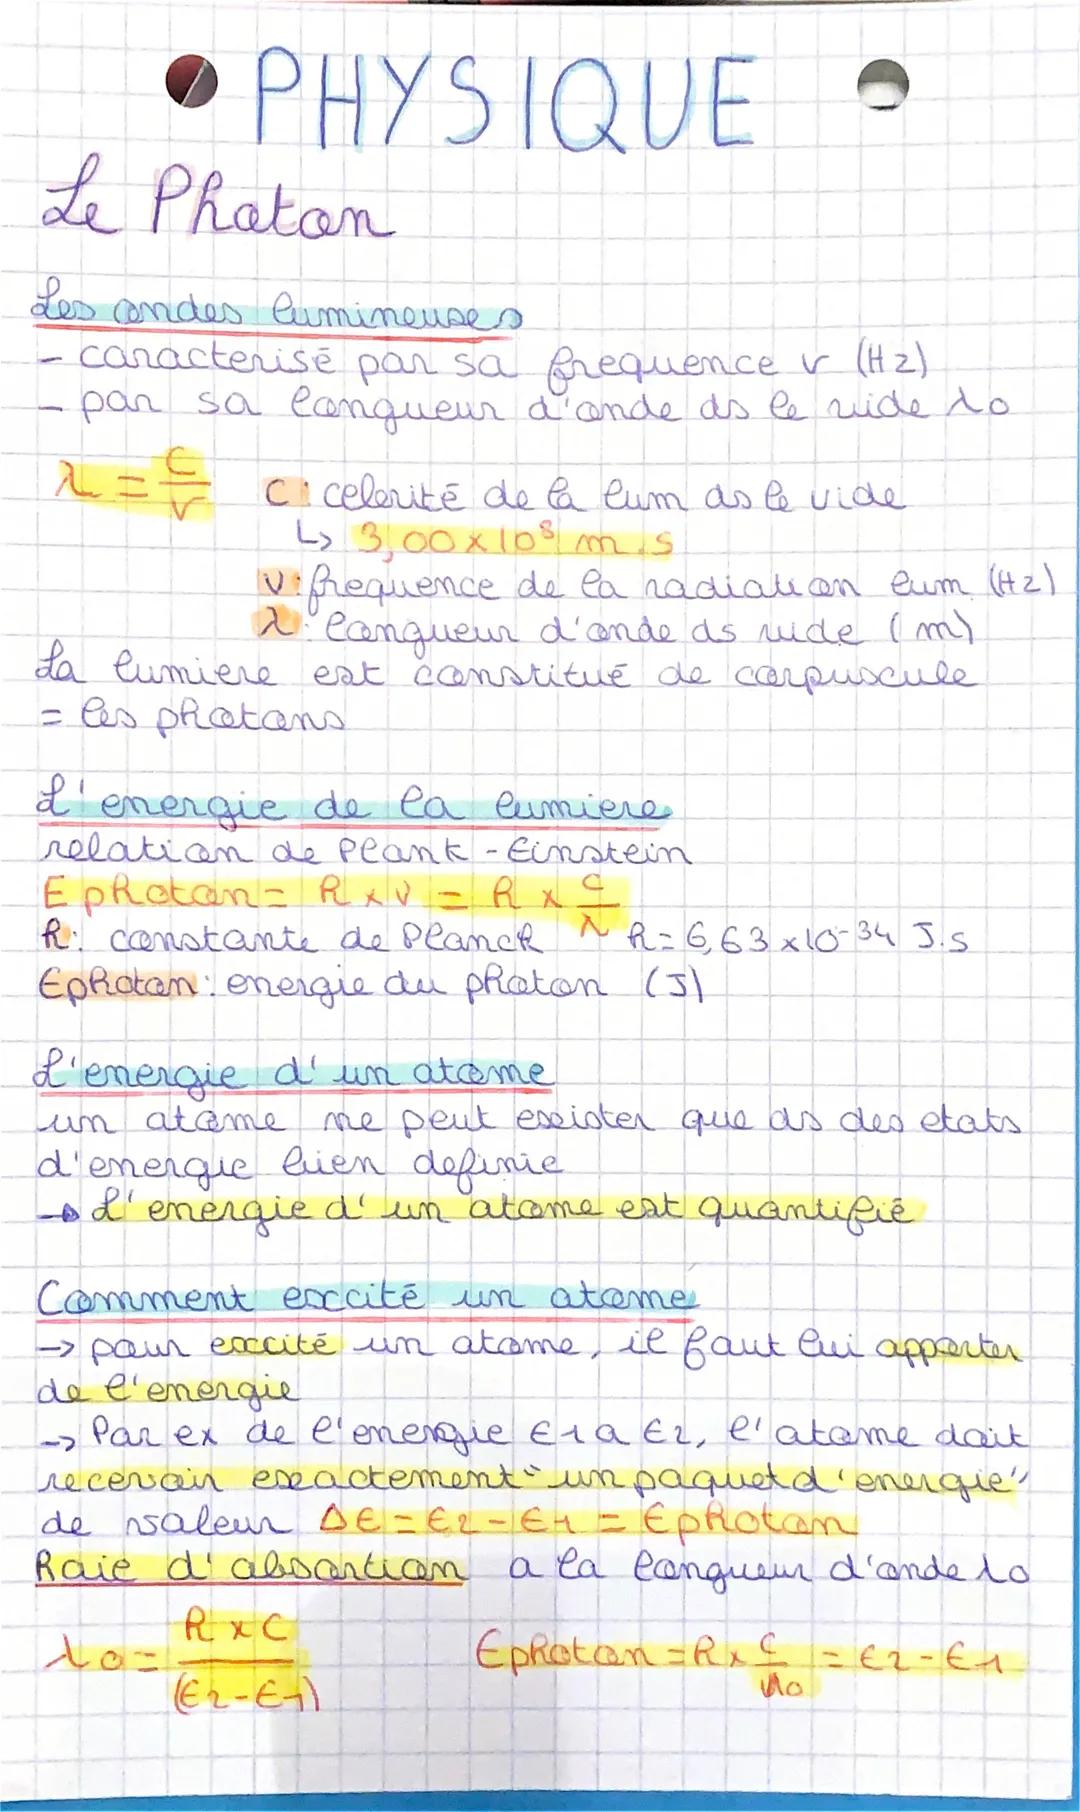 PHYSIQUE
Le Photon
Les ondes lumineuses
- caracterisé par sa frequence ν (Hz)
- par sa longueur d'onde ds le vide λ0
λ = C/ν
C : celerité de la lum ds le vide
↳ 3,00 × 10⁸ m.s
ν : frequence de la radiation lum (Hz)
λ : longueur d'onde ds vide (m)
La lumiere est constitué de corpuscule
= les photons
L'energie de la lumiere
relation de Plank - Einstein
E photon = h × ν = h × C/λ
h : constante de Planck h = 6,63 × 10⁻³⁴ J.s
Ephoton : energie du photon (J)
L'energie d'un atome
un atome ne peut exister que ds des etats
d'energie bien definie
→ L'energie d'un atome est quantifié
Comment excité un atome
→ pour excité un atome, il faut lui apporter
de l'energie
→ Par ex de l'energie E1 a E2, l'atome doit
recevoir exactement "un paquet d'energie"
de valeur ΔE = E2 - E1 = Ephoton
Raie d'absortion a la longueur d'onde λ0
λ0 = h × C/(E2 - E1) Ephoton = h × C/λ0 = E2 - E1